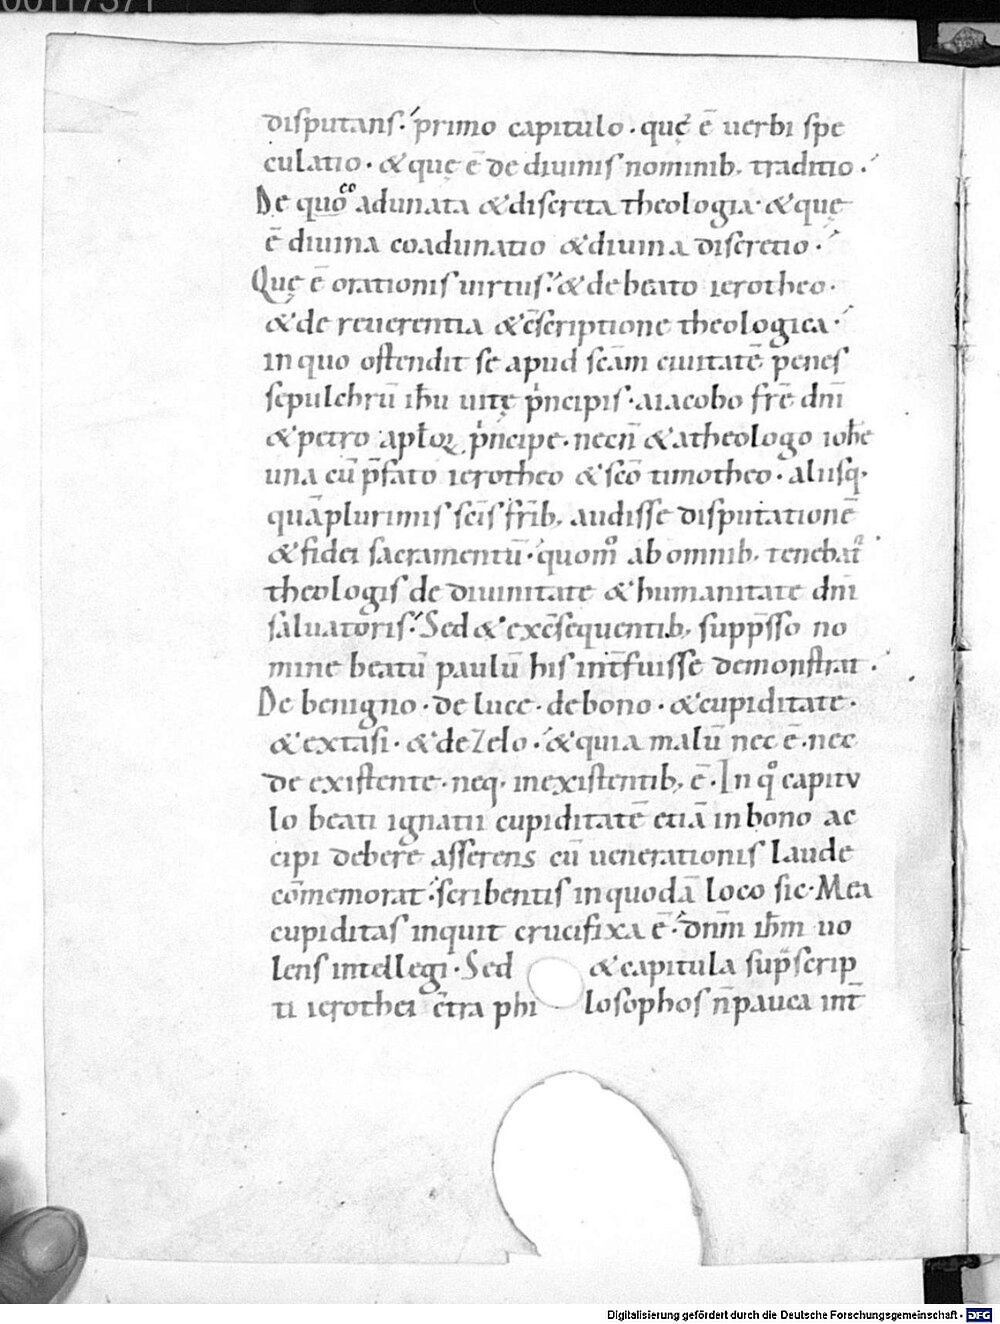 00117371
disputans· primo capitulo· quę ē uerbi spe
culatio· & quę ē de diuinis nominib; traditio·
De quo co adunata & discreta theologia· & quę
ē diuina coadunatio & diuina discretio·
Quę ē orationis uirtus· & de beato ierotheo·
& de reuerentia & c̄scriptione theologica·
in quo ostendit se apud scām ciuitatē penes
sepulchrū ihū uitę p̍ncipis· a iacobo frē dn̄i
& petro aptoꝝ p̍ncipe· necn̄ & a theologo iohe
una cū p̄fato ierotheo & scō timotheo· aliisq;
quāplurimis scīs fr̄ib; audisse disputationē
& fidei sacramentū· quom̊ ab omnib; tenebat᷑
theologis de diuinitate & humanitate dn̄i
saluatoris· Sed & exc̄sequentib; supp̄sso no
mine beatū paulū his int̄fuisse demonstrat·
De benigno· de luce· de bono· & cupiditate·
& extasi· & de zelo· & quia malū nec ē· nec
de existente· neq; in existentib; ē· In q̊ capitu
lo beati ignatii cupiditatē etiā in bono ac
cipi debere asserens cū uenerationis laude
cōmemorat· scribentis in quodā loco sic· Mea
cupiditas inquit crucifixa ē· dn̄m ih̄m uo
lens intellegi· Sed & capitula sup̄scrip
ti ierothei c̄tra philosophos n̄ pauca int̄
Digitalisierung gefördert durch die Deutsche Forschungsgemeinschaft - DFG